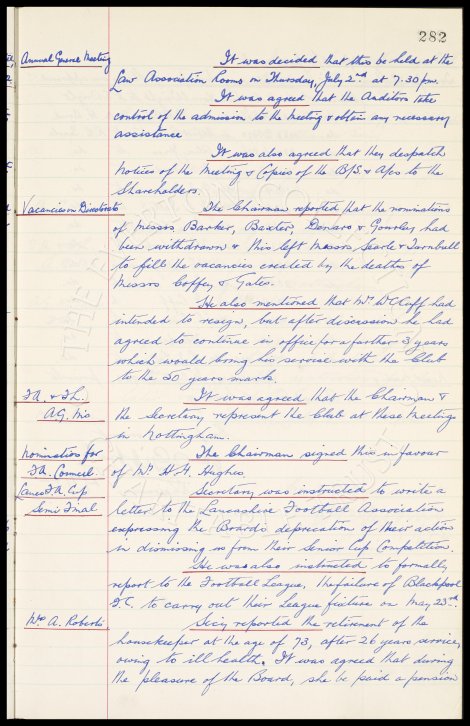 282
Annual General Meeting
It was decided that this be held at the
Law Association Rooms on Thursday, July 2nd at 7.30 pm.
It was agreed that the Auditors take
control of the admission to the Meeting & obtain any necessary
assistance
It was also agreed that they despatch
Notices of the Meeting & Copies of the B/S & A/cs to the
Shareholders.
Vacancies on Directorate
The Chairman reported that the nominations
of Messrs Barker, Baxter, Demaro & Gourley had
been withdrawn & this left Messrs Searle & Turnbull
to fill the vacancies created by the deaths of
Messrs Coffey & Yates.
He also mentioned that Mr W C Cuff had
intended to resign, but after discussion he had
agreed to continue in office for a further 3 years
which would bring his service with the Club
to the 50 years mark.
F.A. & F.L.
A.G. Ms
It was agreed that the Chairman &
the Secretary represent the Club at these Meetings
in Nottingham.
Nomination for
F.A. Council
The Chairman signed this in favour
of Mr H.G. Hughes
Lancs F.A. Cup
Semi Final
Secretary was instructed to write a
letter to the Lancashire Football Association
expressing the Board's deprecation of their actions
in dismissing us from their Senior Cup Competition.
He was also instructed to formally
report to the Football League, the failure of Blackpool
F.C. to carry out their League fixture on May 23rd.
Mrs A. Roberts.
Secy reported the retirement of the
housekeeper at the age of 73, after 26 years service,
owing to ill health. It was agreed that during
the pleasure of the Board, she be paid a pension